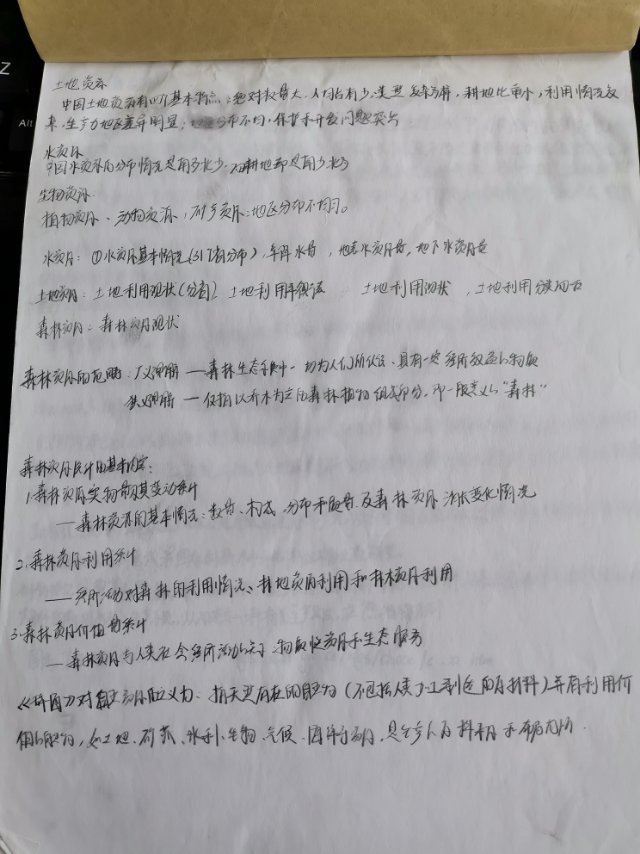 土地资源
中国土地资源有四个基本特点:绝对数量大,人均占有少,类型复杂多样,耕地比重小,利用情况复
杂,生产力地区差异明显;分布不均,保护和开发问题突出
水资源
中国水资源的分布情况是南多北少,而耕地却是南少北多
生物资源
植物资源、动物资源,矿产资源:地区分布不均匀。
水资源:①水资源基本情况(分布),年降水量,地表水资源量,地下水资源量
土地资源:土地利用现状(分类) 土地利用 土地利用现状,土地利用
森林资源:森林资源现状
森林资源的范畴:广义理解——森林生态系统中一切为人们所认识,具有一定经济效益的物质
狭义理解——仅指以乔木为主的森林植物组成部分,即一般意义的“森林”
森林资源统计的基本内容:
1.森林资源实物量及其变动统计
——森林资源的基本情况:数量、构成、分布和质量及森林资源消长变化情况
2.森林资源利用统计
——经济活动对森林的利用情况:林地资源利用和林木资源利用
3.森林资源价值量统计
——森林资源与人类社会经济活动的:物质性资源和生态服务
对自然资源定义为:指天然存在的自然物(不包括人类加工制造的原材料)并有利用价
值的自然物,如土地、矿藏、水利、生物、气候、海洋等资源,是生产的原料来源和布局场所.